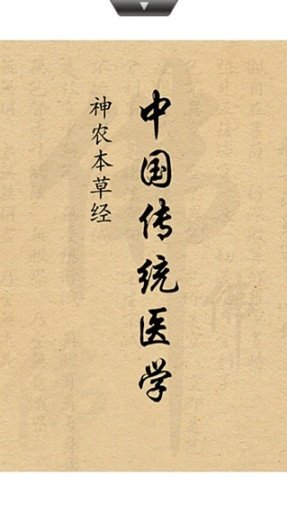 中国传统医学
神农本草经